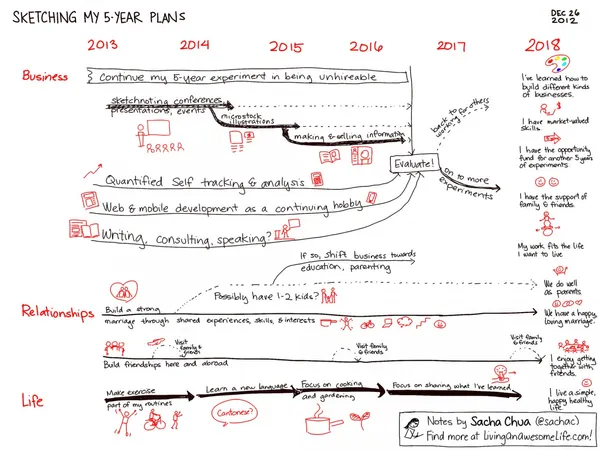 SKETCHING MY 5-YEAR PLANS
DEC 26
2012
2013
2014
2015
2016
2017
2018
Business
Continue my 5-year experiment in being unhireable
sketchnoting conferences,
presentations, events
microstock
illustrations
making & selling information
back to
working for others
Evaluate!
on to more
experiments
Quantified Self tracking & analysis
Web & mobile development as a continuing hobby
Writing, consulting, speaking?
I've learned how to
build different kinds
of businesses.
I have market-valued
skills.
I have the opportunity
fund for another 5 years
of experiments.
I have the support of
family & friends.
My work fits the life
I want to live
If so, shift business towards
education, parenting
Possibly have 1-2 kids?
We do well
as parents.
Relationships
Build a strong
marriage through shared experiences, skills, & interests
We have a happy,
loving marriage.
Visit
family &
friends
Visit
family
& friends
Visit family
& friends
Build friendships here and abroad
I enjoy getting
together with
friends.
Life
Make exercise
part of my routines
Learn a new language
Cantonese?
Focus on cooking
and gardening
Focus on sharing what I've learned
I live a simple,
happy healthy
life.
Notes by Sacha Chua (@sachac)
Find more at LivingAnAwesomeLife.com!